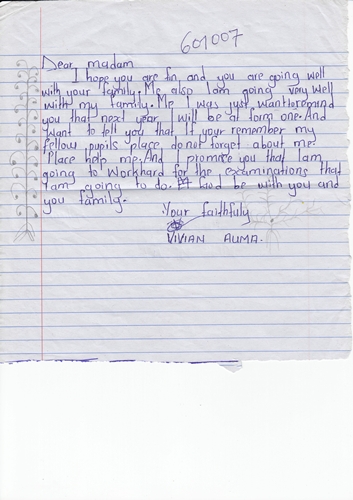 601007
Dear madam
I hope you are fin, and you are going well
with your family. Me also I am going very well
with my family. Me I was just want to remind
you that next year I will be at form one. And
want to tell you that If your remember my
fellow pupils place do not forget about me.
Place help me. And I promise you that I am
going to workhard for the examinations that
I am going to do. God be with you and
you family.
Your faithfuly
VIVIAN AUMA.